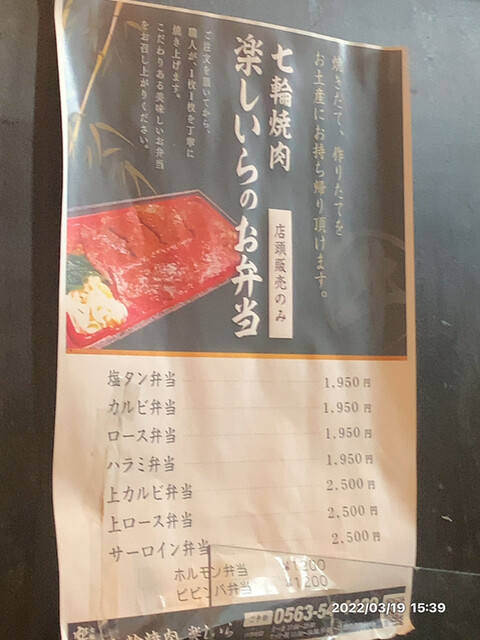 焼きたて、作りたてを
お土産にお持ち帰り頂けます。
七輪焼肉
楽しいらのお弁当
店頭販売のみ
ご注文を頂いてから、
職人が、1枚1枚を丁寧に
焼き上げます。
こだわりある美味しいお弁当
をお召し上がりください。
塩タン弁当 1,950円
カルビ弁当 1,950円
ロース弁当 1,950円
ハラミ弁当 1,950円
上カルビ弁当 2,500円
上ロース弁当 2,500円
サーロイン弁当 2,500円
ホルモン弁当 ¥1200
ビビンバ弁当 ¥1200
七輪焼肉 楽しいら
0563-5
2022/03/19 15:39